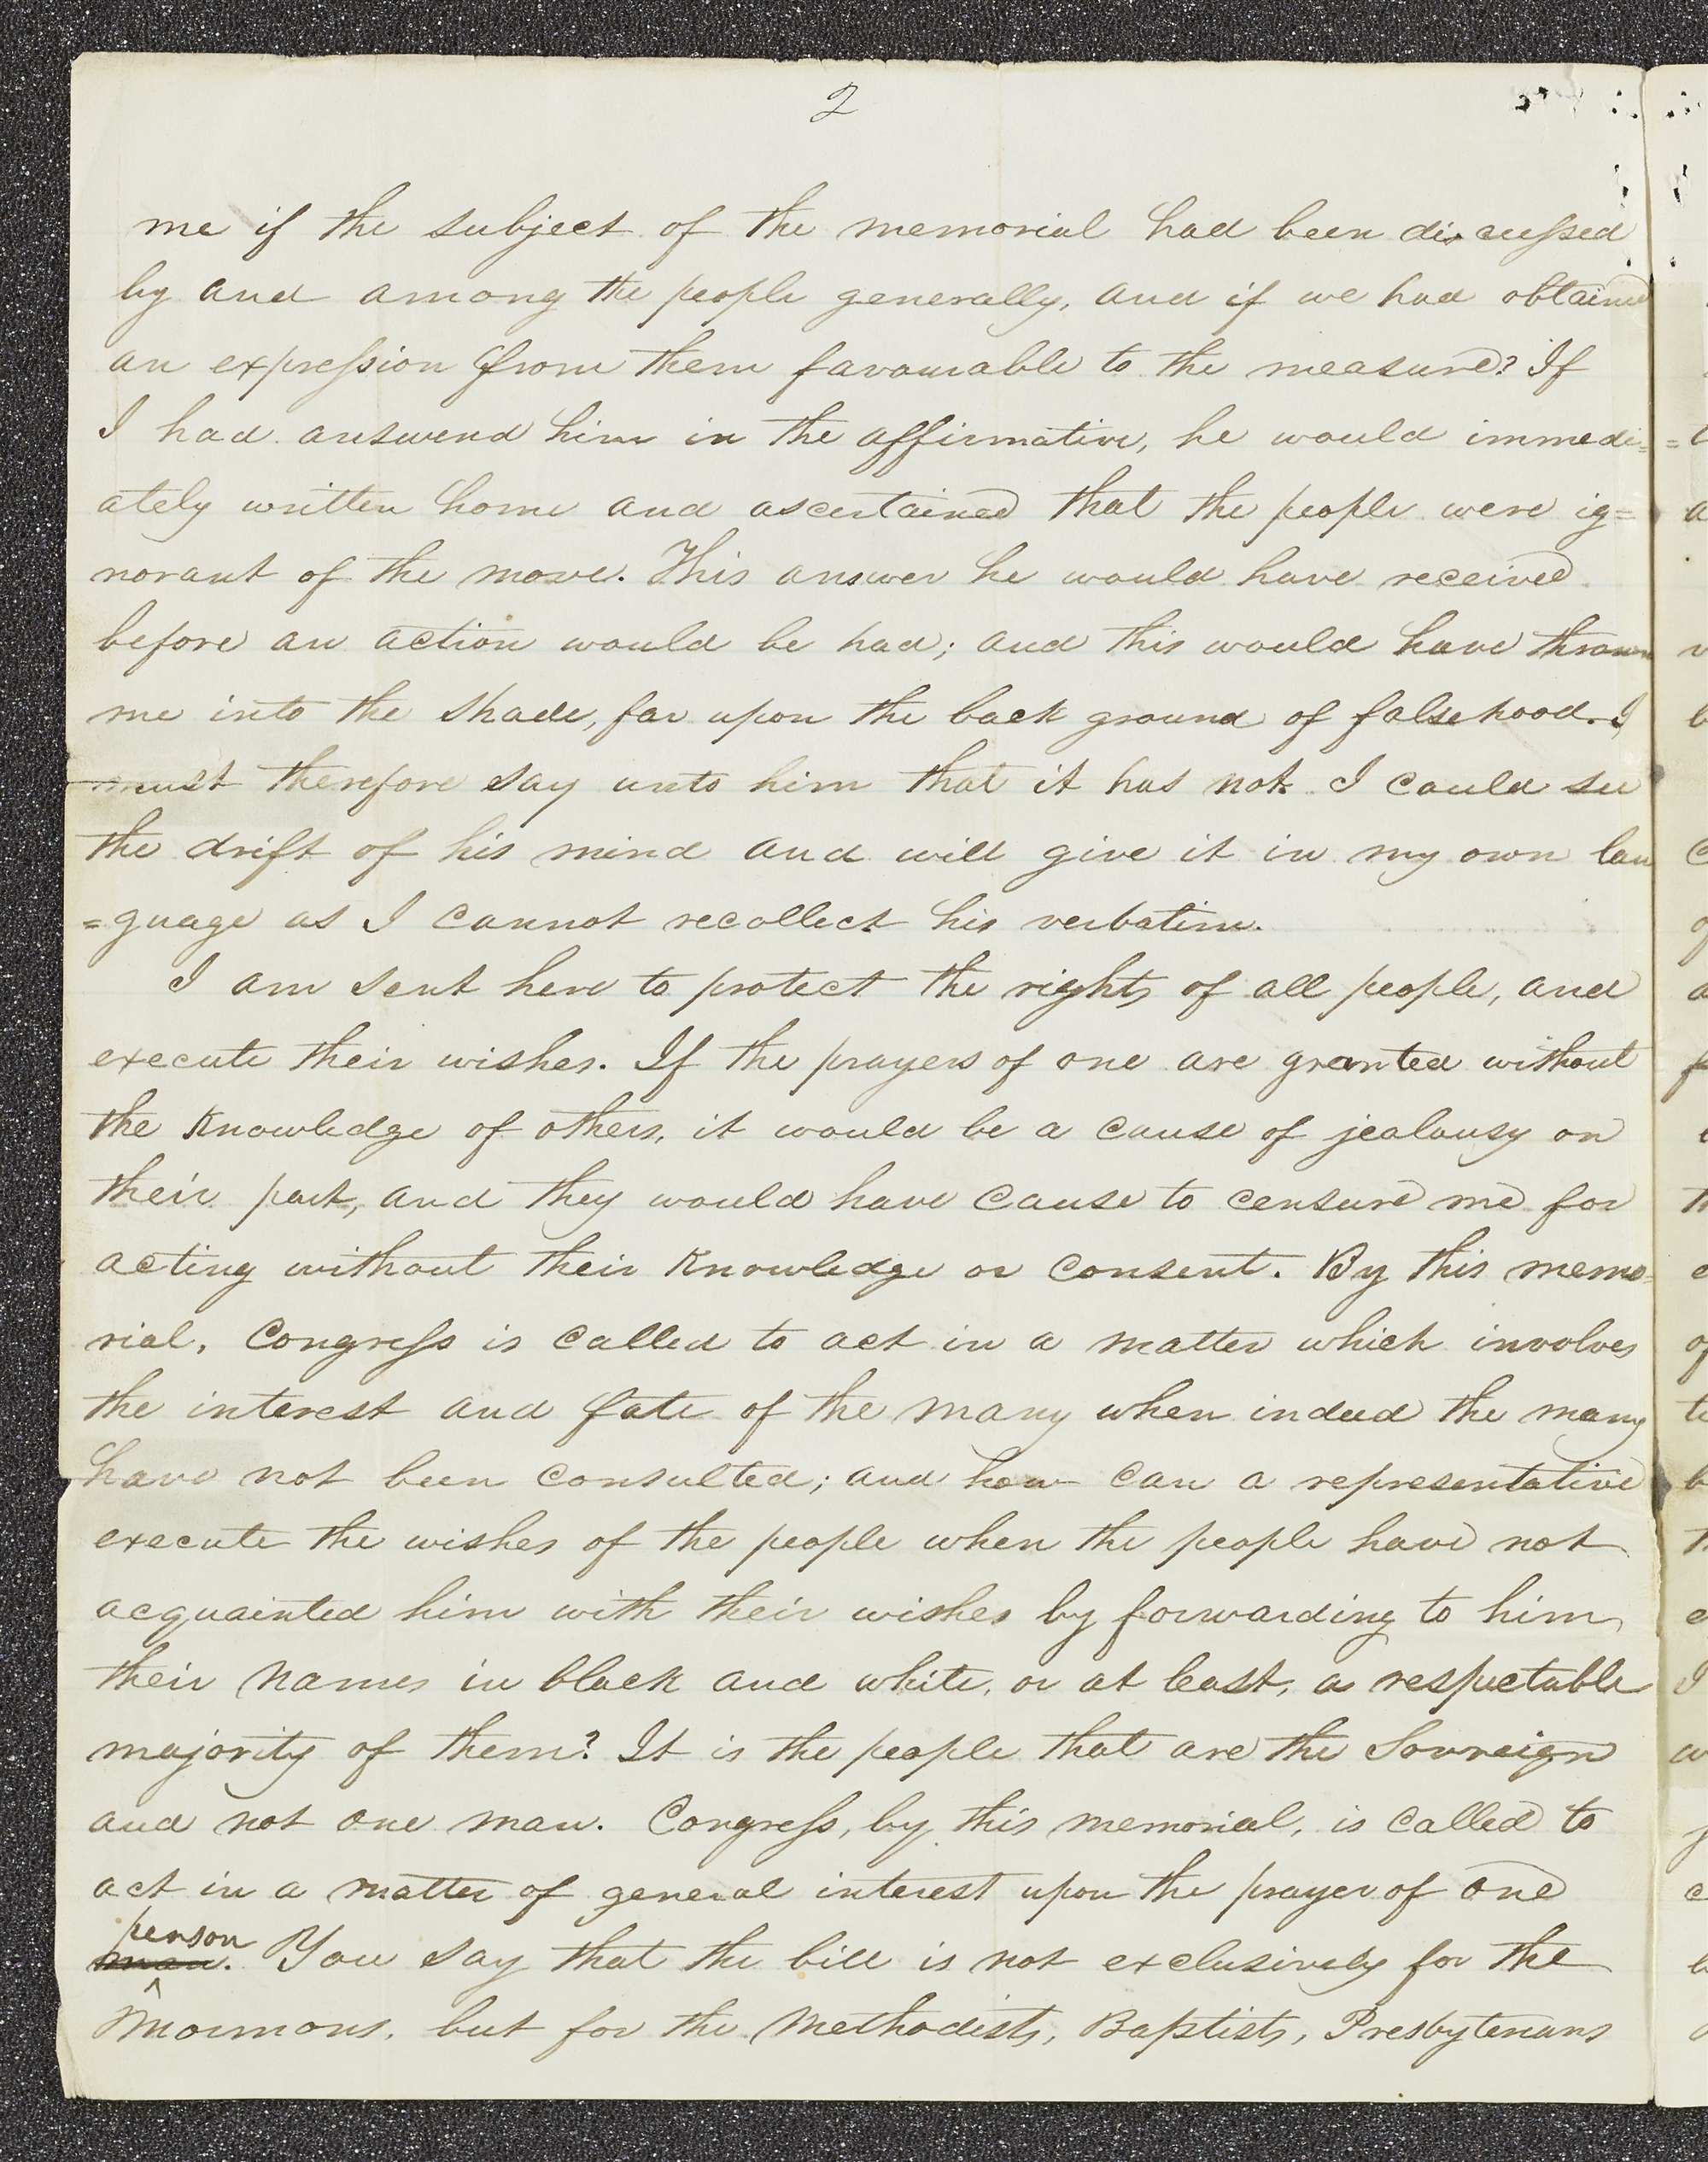 2
me if the subject of the memorial had been discussed
by and among the people generally, and if we had obtained
an expression from them favourable to the measure? If
I had answered him in the affirmative, he would immedi=
ately written home and ascertained that the people were ig=
norant of the move. This answer he would have received
before an action would be had; and this would have thrown
me into the shade, far upon the back ground of falsehood. I
must therefore say unto him that it has not. I could see
the drift of his mind and will give it in my own lan
=guage as I cannot recollect his verbatim.
I am sent here to protect the rights of all people, and
execute their wishes. If the prayers of one are granted without
the knowledge of others, it would be a cause of jealousy on
their part, and they would have cause to censure me for
acting without their knowledge or consent. By this memo=
rial, Congress is called to act in a matter which involves
the interest and fate of the many when indeed the many
have not been consulted; and how can a representative
execute the wishes of the people when the people have not
acquainted him with their wishes by forwarding to him
their names in black and white, or at least, a respectable
majority of them? It is the people that are the Sovreign
and not one man. Congress, by this memorial, is called to
act in a matter of general interest upon the prayer of one
person
man. You say that the bill is not exclusively for the
Mormons, but for the Methodists, Baptists, Presbyterians